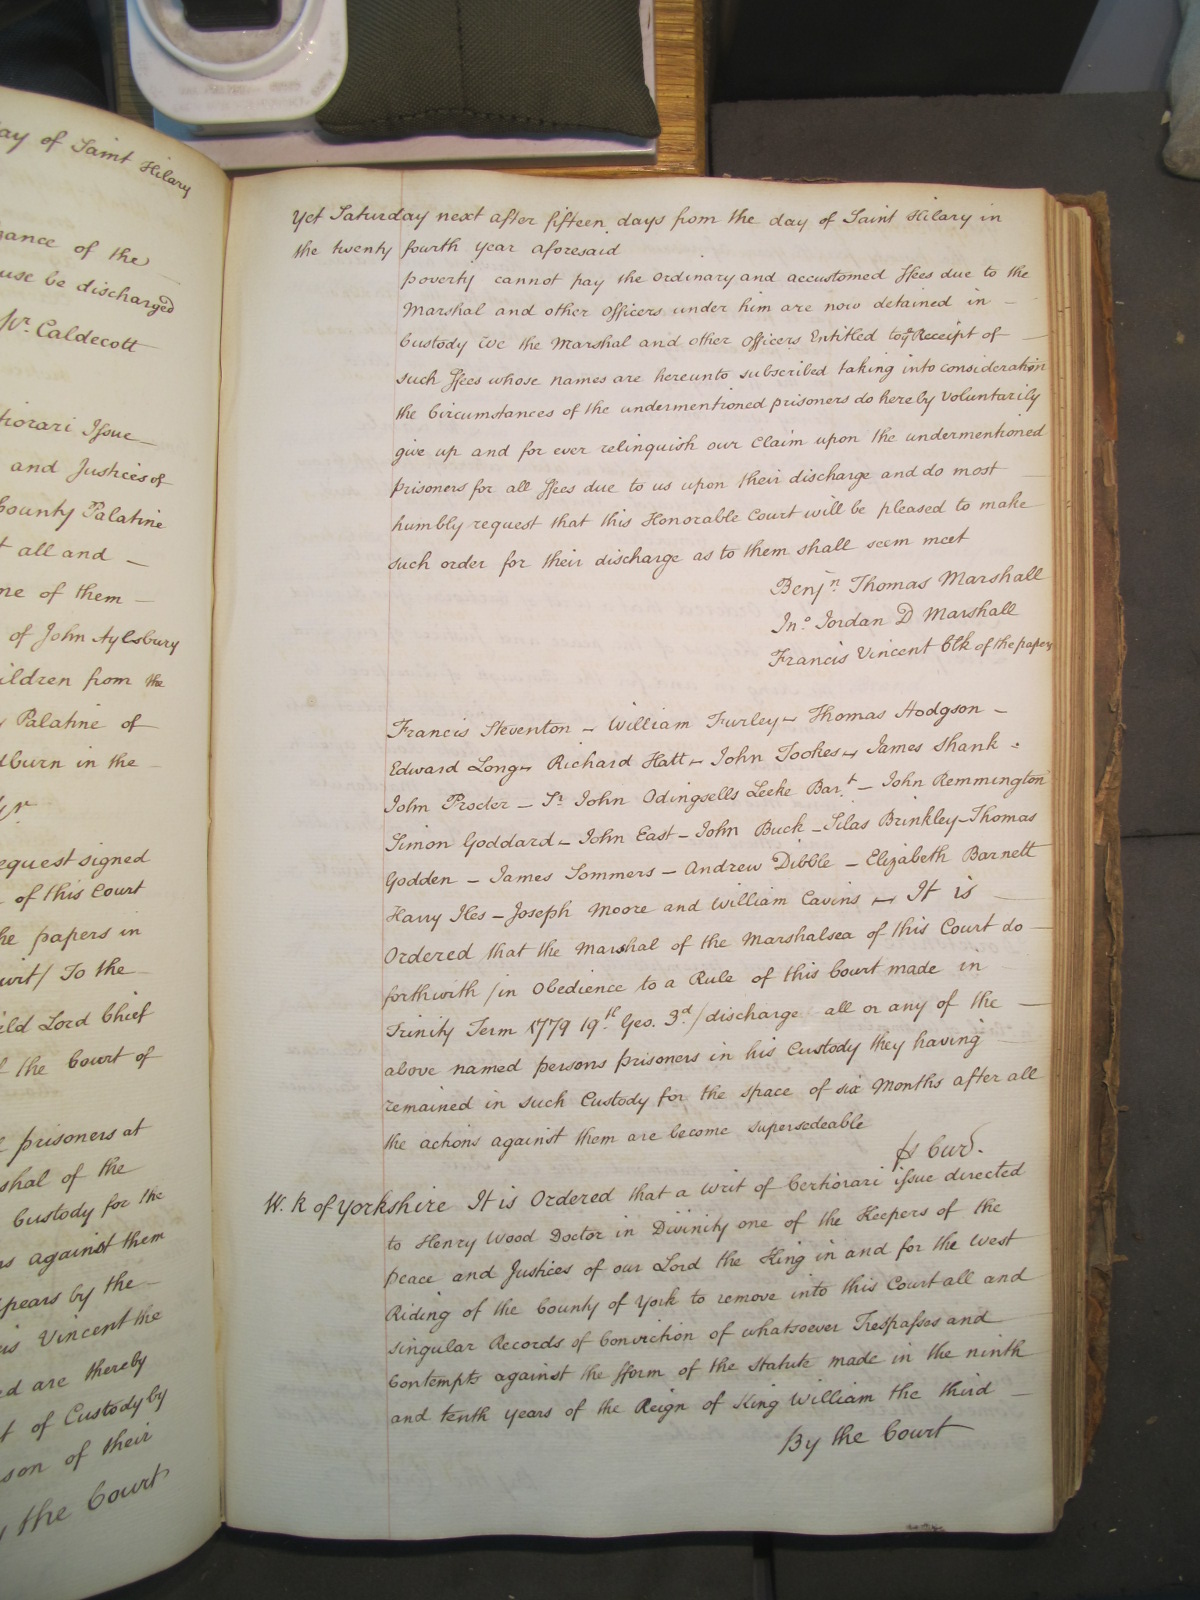 ay of Saint Hilary
ance of the
use be discharged
Wr. Caldecott
tiorari Issue
and Justices of
County Palatine
all and
ne of them
of John Aylesbury
ildren from the
Palatine of
dburn in the
equest signed
of this Court
he papers in
To the
ild Lord Chief
the Court of
prisoners at
shal of the
Custody for the
s against them
pears by the
is Vincent the
ed are thereby
t of Custody by
son of their
the Court
Yet Saturday next after fifteen days from the day of Saint Hilary in
the twenty fourth year aforesaid
poverty cannot pay the ordinary and accustomed ffees due to the
Marshal and other Officers under him are now detained in
Custody we the Marshal and other Officers Entitled to ye Receipt of
such ffees whose names are hereunto subscribed taking into consideration
the Circumstances of the undermentioned prisoners do hereby Voluntarily
give up and for ever relinquish our Claim upon the undermentioned
prisoners for all ffees due to us upon their discharge and do most
humbly request that this Honorable Court will be pleased to make
such order for their discharge as to them shall seem meet
Benjn. Thomas Marshall
Jno. Jordan D Marshall
Francis Vincent Clk of the papers
Francis Steventon – William Furley – Thomas Hodgson –
Edward Long – Richard Hatt – John Tookes – James Shank –
John Procter – Sr. John Odingsells Leeke Bart. – John Remmington
Simon Goddard – John East – John Buck – Silas Brinkley – Thomas
Godden – James Sommers – Andrew Dibble – Elizabeth Barnett
Harry Iles – Joseph Moore and William Cavins – It is
Ordered that the Marshal of the Marshalsea of this Court do
forthwith /in Obedience to a Rule of this Court made in
Trinity Term 1779 19th. Geo. 3d./ discharge all or any of the
above named persons prisoners in his Custody they having
remained in such Custody for the space of six Months after all
the actions against them are become supersedeable
Wt. R of Yorkshire It is Ordered that a Writ of Certiorari issue directed
to Henry Wood Doctor in Divinity one of the Keepers of the
peace and Justices of our Lord the King in and for the West
Riding of the County of York to remove into this Court all and
singular Records of Conviction of whatsoever Trespasses and
Contempts against the fform of the Statute made in the ninth
and tenth years of the Reign of King William the third
By the Court